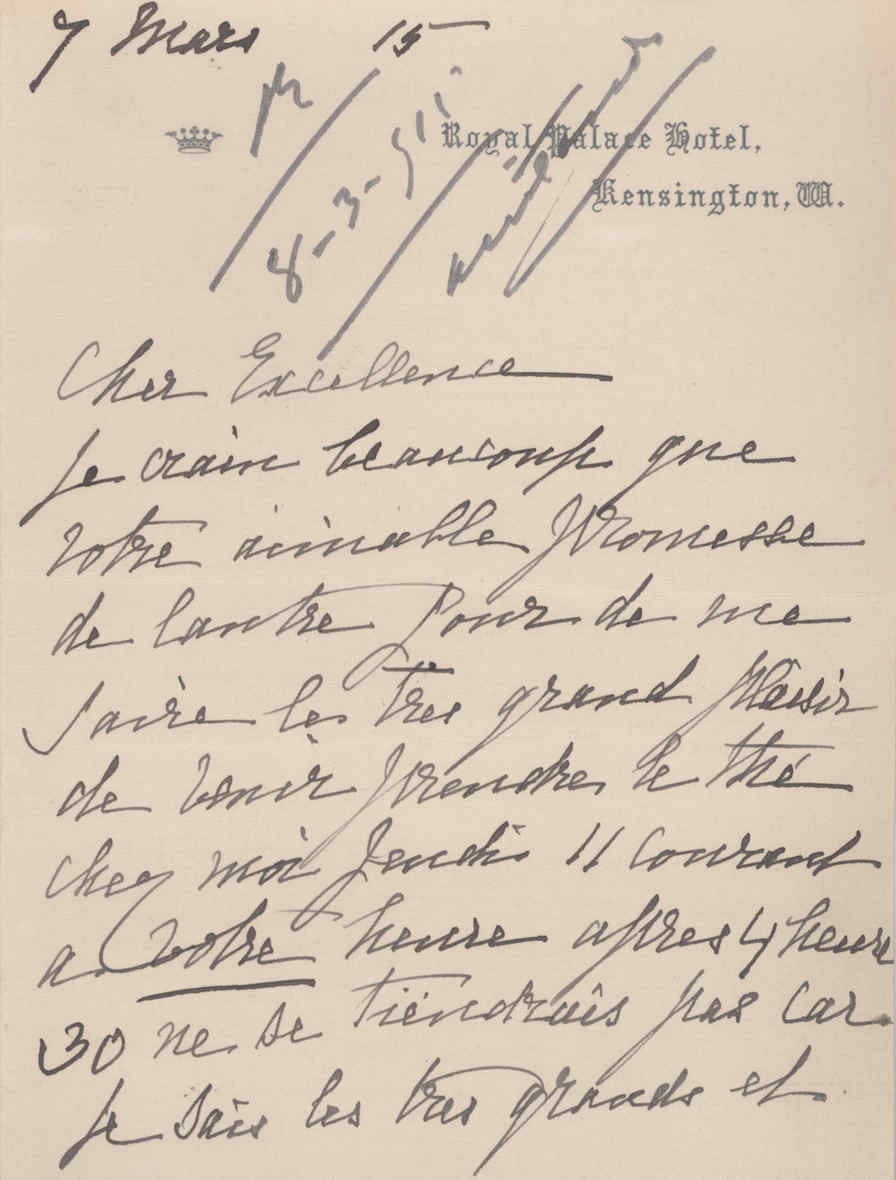 7 Mars 15
Royal Palace Hotel,
Kensington, W.
8-3-915
Cher Excellence
Je crain beaucoup que
votre aimable promesse
de lautre jour de me
faire les tres grand plaisir
de venir prendre le thé
chez moi Jeudi 11 courant
a votre heure apres 4 heure
30 ne se tiendrais pas car
je sais les tres grands et